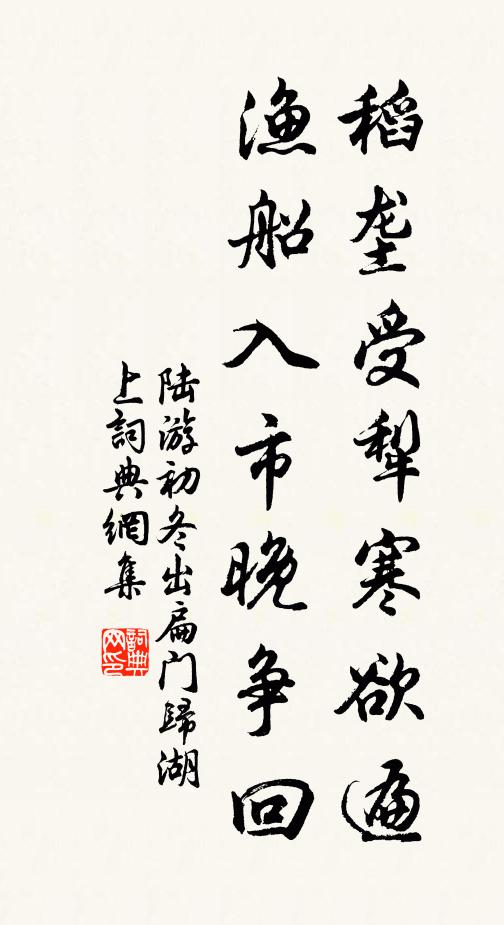 稻垄受犁寒欲遍
渔船入市晚争回
陆游初冬出扁门歸湖
上詞典網集
詞典网印